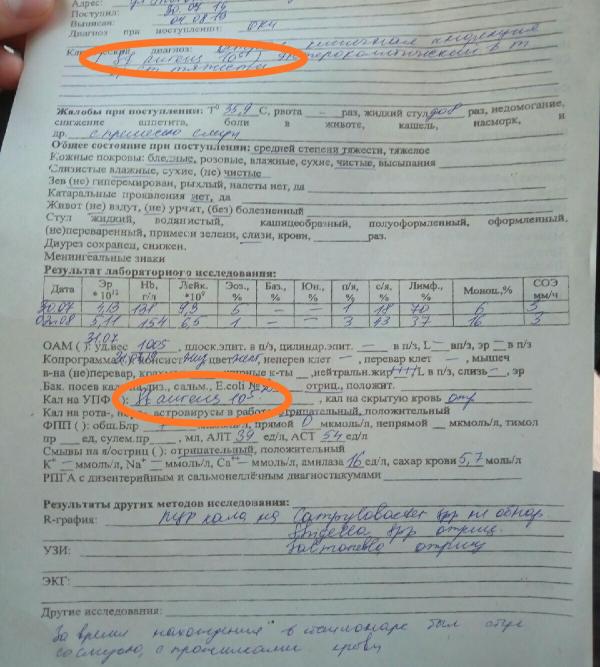 Адрес:
Поступил: 30.07.16
Выписан: 04.08.16
Диагноз при поступлении: ОКИ
Клинический диагноз: кишечная инфекция
средней тяжести
Жалобы при поступлении: Т⁰ 35,9 С, рвота – раз, жидкий стул до 8 раз, недомогание,
снижение аппетита, боли в животе, кашель, насморк, и
др. с примесью слизи
Общее состояние при поступлении: средней степени тяжести, тяжелое
Кожные покровы: бледные, розовые, влажные, сухие, чистые, высыпания
Слизистые влажные, сухие, (не) чистые
Зев (не) гиперемирован, рыхлый, налеты нет, да
Катаральные проявления нет, да
Живот (не) вздут, (не) урчит, (без) болезненный
Стул жидкий, водянистый, кашицеобразный, полуоформленный, оформленный,
(не)переваренный, примеси зелени, слизи, крови, раз.
Диурез сохранен, снижен.
Менингеальные знаки
Результат лабораторного исследования:
Дата Эр *10¹² Hb, г/л Лейк. *10⁹ Эоз., % Баз., % Юн., % п/я, % с/я, % Лимф., % Моноц.,% СОЭ мм/ч
30.07 4,13 138 9,3 5 – – 1 18 70 6 3
02.08 5,11 154 6,5 1 – – 3 43 37 16 3
31.07
ОАМ ( ): уд.вес 1005, плоск.эпит. в п/з, цилиндр.эпит. – в п/з, L – вп/з, эр – в п/з
Копрограмма консист. жид цвет жел, неперев клет –, перевар клет –, мышеч
в-на (не)перевар, жирные к-ты, нейтральн.жир +++ в п/з, слизь –, эр
Бак. посев кал на диз., сальм., E.coli № отриц., положит.
Кал на УПФ ( ): 10⁵, кал на скрытую кровь отр
Кал на рота-, астровирусы в работе, отрицательный, положительный
ФПП ( ): общ.Блр мкмоль/л, прямой 0 мкмоль/л, непрямой – мкмоль/л, тимол
пр ед, сулем.пр , мл, АЛТ 39 ед/л, АСТ 54 ед/л
Смывы на я/остриц ( ): отрицательный, положительный
K⁺ – ммоль/л, Na⁺ – ммоль/л, Ca⁺⁺ – ммоль/л, амилаза 16 ед/л, сахар крови 5,7 моль/л
РПГА с дизентерийным и сальмонеллёзным диагностикумами
Результаты других методов исследования:
R-графия: ПЦР кала на обнар
Shigella spp отриц
Salmonella отриц
УЗИ:
ЭКГ:
Другие исследования:
За время нахождения в стационаре был стул
со слизью, с прожилками крови